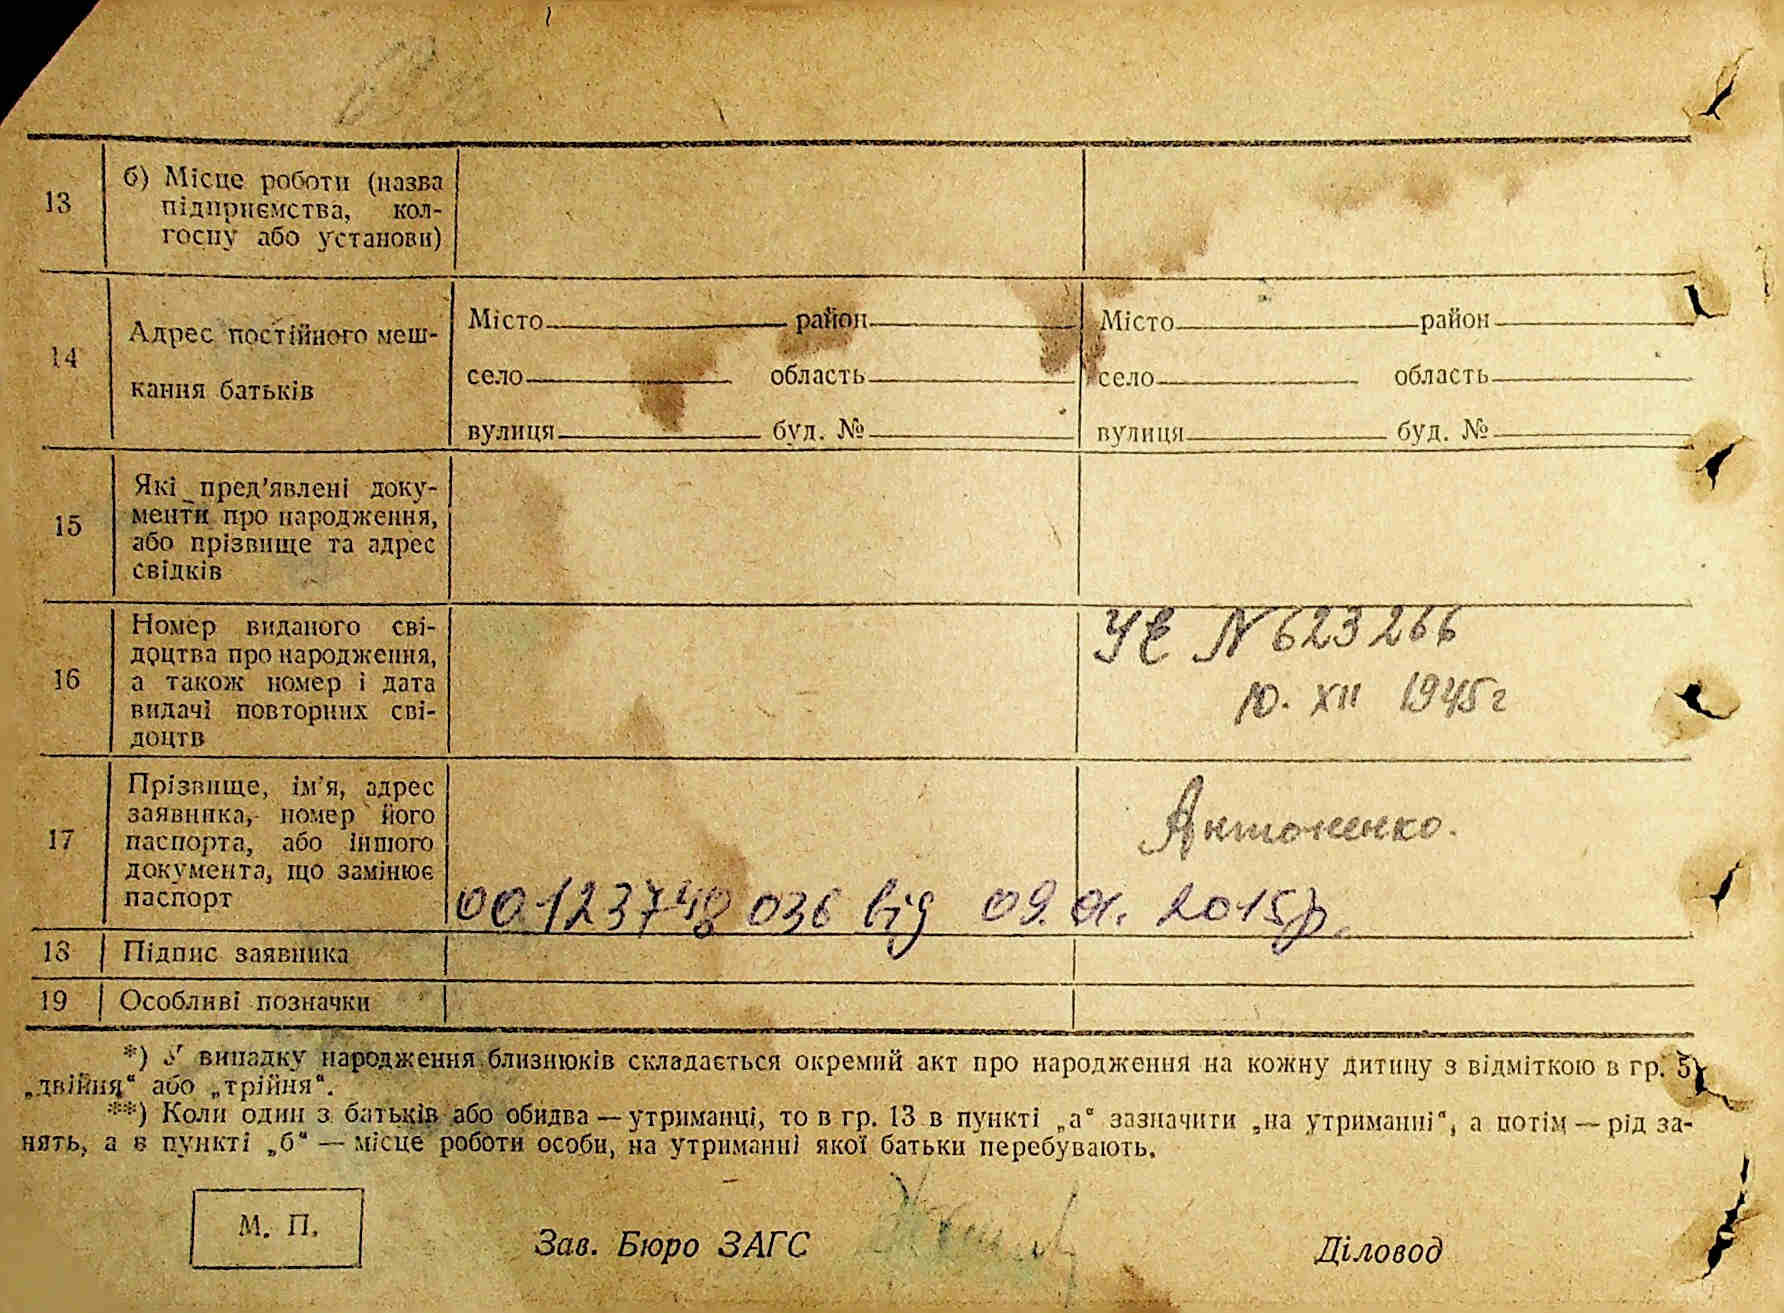 13
б) Місце роботи (назва
підприємства, кол-
госпу або установи)
14
Адрес постійного меш-
кання батьків
Місто район
село область
вулиця буд. №
Місто район
село область
вулиця буд. №
15
Які пред'явлені доку-
менти про народження,
або прізвище та адрес
свідків
16
Номер виданого сві-
доцтва про народження,
а також номер і дата
видачі повторних сві-
доцтв
УЄ N 623266
10. XII 1945 г
17
Прізвище, ім'я, адрес
заявника, номер його
паспорта, або іншого
документа, що замінює
паспорт
Антоненко.
00123748036 від 09.01.2015р.
18 Підпис заявника
19 Особливі позначки
*) У випадку народження близнюків складається окремий акт про народження на кожну дитину з відміткою в гр. 5
„двійня“ або „трійня“.
**) Коли один з батьків або обидва — утриманці, то в гр. 13 в пункті „а“ зазначити „на утриманні“, а потім — рід за-
нять, а в пункті „б“ — місце роботи особи, на утриманні якої батьки перебувають.
М. П.
Зав. Бюро ЗАГС
Діловод